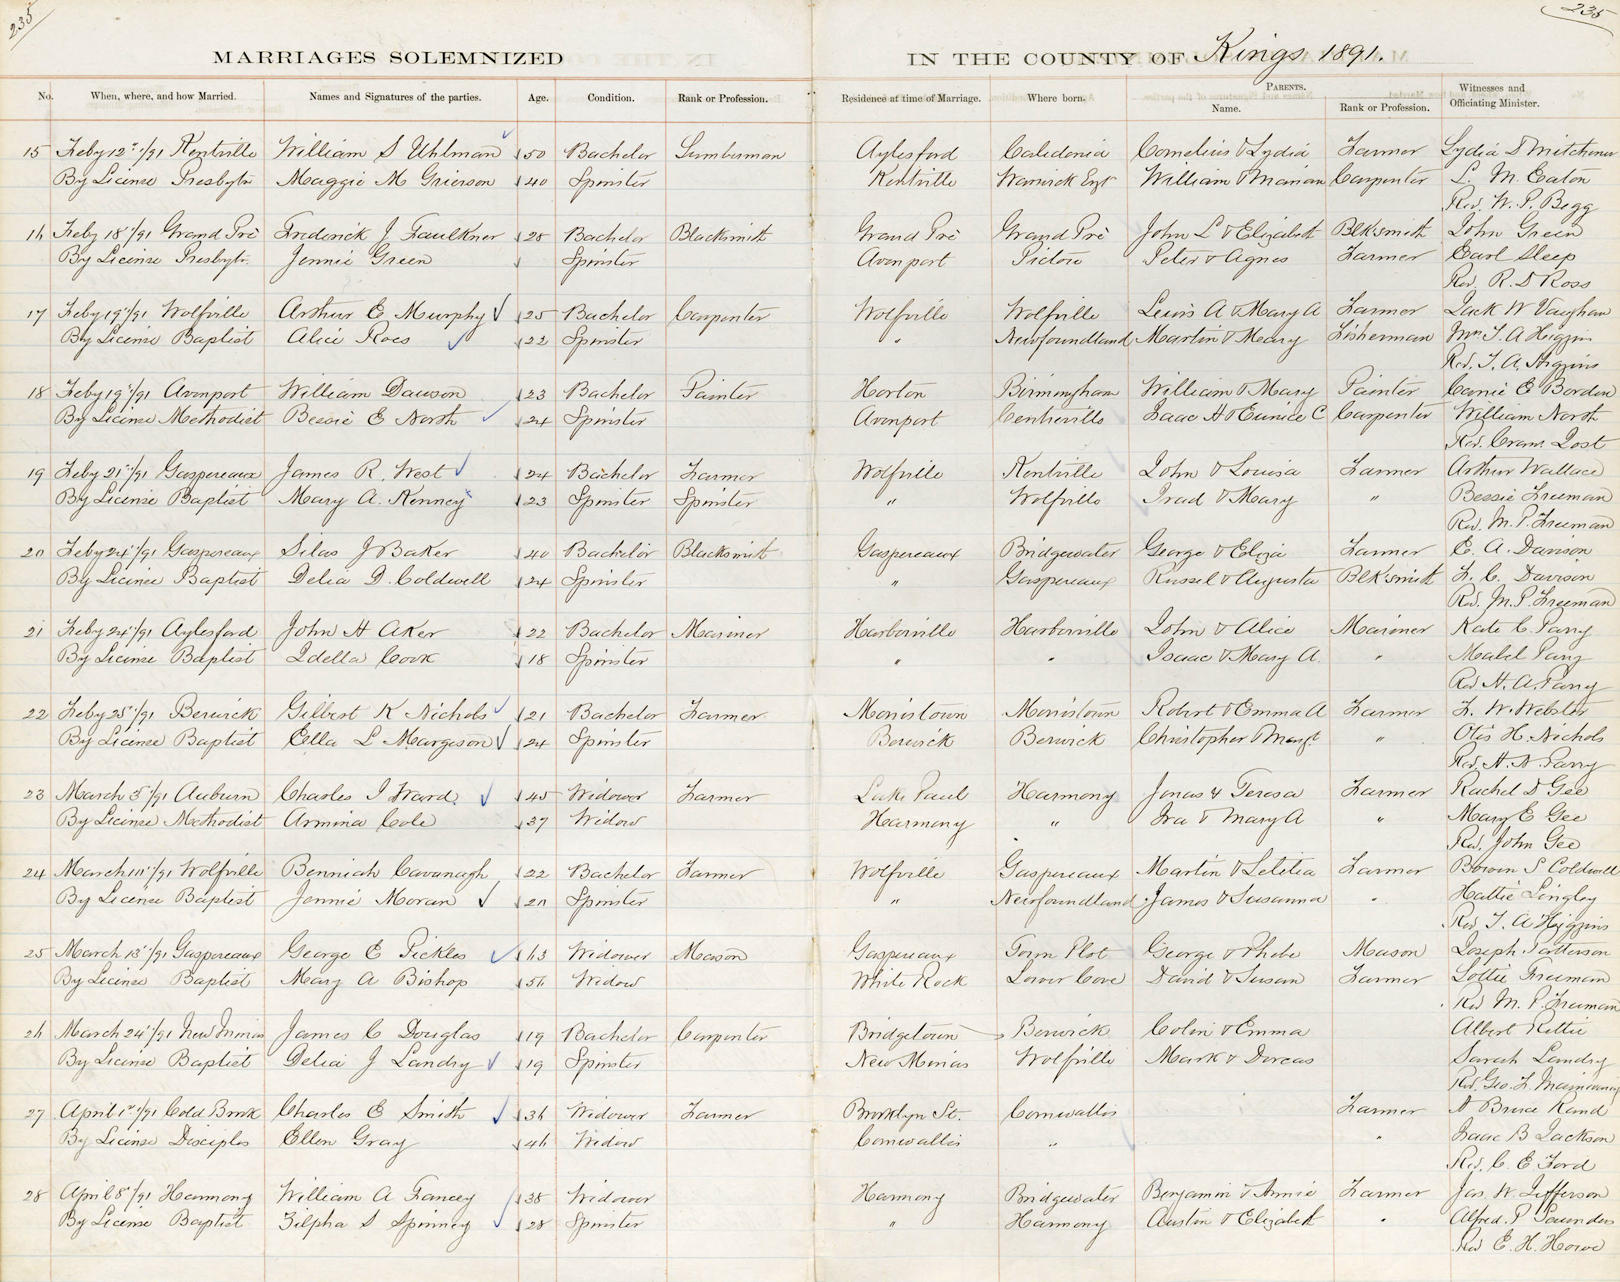 235
235
MARRIAGES SOLEMNIZED IN THE COUNTY OF Kings 1891.
No. When, where, and how Married. Names and Signatures of the parties. Age. Condition. Rank or Profession. Residence at time of Marriage. Where born. PARENTS. Name. Rank or Profession. Witnesses and Officiating Minister.
15 Feby 12"/91 Kentville William S Uhlman 50 Bachelor Lumberman Aylesford Caledonia Cornelius & Lydia Farmer Lydia D Mitchener
By License Presbytn Maggie M Grierson 40 Spinster Kentville Warwick Engt William & Marian Carpenter L. M. Eaton
Rev. W. P. Begg
16 Feby 18"/91 Grand Pré Frederick J Faulkner 28 Bachelor Blacksmith Grand Pré Grand Pré John L & Elizabeth Blksmith John Green
By License Presbytn Jennie Green Spinster Avonport Pictou Peter & Agnes Farmer Earl Sleep
Rev. R. D Ross
17 Feby 19"/91 Wolfville Arthur E Murphy 25 Bachelor Carpenter Wolfville Wolfville Lewis A & Mary A Farmer Jack W Vaughan
By License Baptist Alice Roes 22 Spinster " Newfoundland Martin & Mary Fisherman Mrs T. A Higgins
Rev. T. A. Higgins
18 Feby 19"/91 Avonport William Dawson 23 Bachelor Painter Horton Birmingham William & Mary Painter Carrie E Borden
By License Methodist Bessie E North 24 Spinster Avonport Centreville Isaac H & Eunice C Carpenter William North
Rev. Cranw Jost
19 Feby 21"/91 Gaspereaux James R. West 24 Bachelor Farmer Wolfville Kentville John & Louisa Farmer Arthur Wallace
By License Baptist Mary A. Kenney 23 Spinster Spinster " Wolfville Irad & Mary " Bessie Freeman
Rev. M. P. Freeman
20 Feby 24"/91 Gaspereaux Silas J Baker 40 Bachelor Blacksmith Gaspereaux Bridgewater George & Eliza Farmer E. A. Davison
By License Baptist Delia D. Coldwell 24 Spinster " Gaspereaux Russel & Augusta Blksmith F. C. Davison
Rev. M. P. Freeman
21 Feby 24"/91 Aylesford John H Aker 22 Bachelor Mariner Harborville Harborville John & Alice Mariner Kate C. Parry
By License Baptist Idella Cook 18 Spinster " " Isaac & Mary A. " Mabel Parry
Rev H. A. Parry
22 Feby 25"/91 Berwick Gilbert K Nichols 21 Bachelor Farmer Morristown Morristown Robert & Emma A Farmer F. W. Webster
By License Baptist Ella L Margeson 24 Spinster Berwick Berwick Christopher & Margt " Otis H. Nichols
Rev. H. A. Parry
23 March 3"/91 Auburn Charles I Ward 45 Widower Farmer Lake Paul Harmony Jonas & Teresa Farmer Rachel D Gee
By License Methodist Armina Cole 37 Widow Harmony " Ira & Mary A " Mary E Gee
Rev. John Gee
24 March 10"/91 Wolfville Benniah Cavanagh 22 Bachelor Farmer Wolfville Gaspereaux Martin & Letitia Farmer Bowen S Coldwell
By License Baptist Jennie Moran 20 Spinster " Newfoundland James & Susanna " Hattie Lingley
Rev. T. A Higgins
25 March 18"/91 Gaspereaux George E Pickles 63 Widower Mason Gaspereaux Town Plot George & Phebe Mason Joseph Patterson
By License Baptist Mary A Bishop 56 Widow White Rock Lower Cove David & Susan Farmer Lottie Freeman
Rev M. P. Freeman
26 March 24"/91 New Minas James C Douglas 19 Bachelor Carpenter Bridgetown Berwick Colin & Emma Albert Kellie
By License Baptist Delia J Landry 19 Spinster New Minas Wolfville Mark & Dorcas Sarah Landry
Rev. Geo. F. Mainwaring
27 April 1st/91 Cold Brook Charles E Smith 36 Widower Farmer Brooklyn St. Cornwallis Farmer A Bruce Rand
By License Disciples Ellen Gray 46 Widow Cornwallis " " Isaac B Jackson
Rev. C. E Ford
28 April 8"/91 Harmony William A Fancey 38 Widower Harmony Bridgewater Benjamin & Annie Farmer Jas. W. Jefferson
By License Baptist Zilpha S Spinney 28 Spinster " Harmony Austin & Elizabeth " Alfred. P Saunders
Rev E. H. Howe